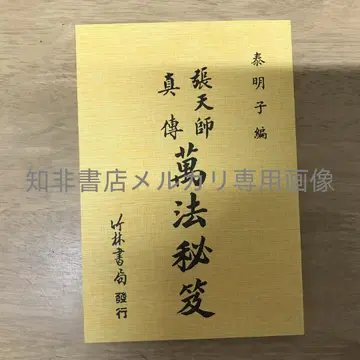 泰明子編
張天師
真傳
萬法秘笈
竹林書局發行
知非書店メルカリ専用画像